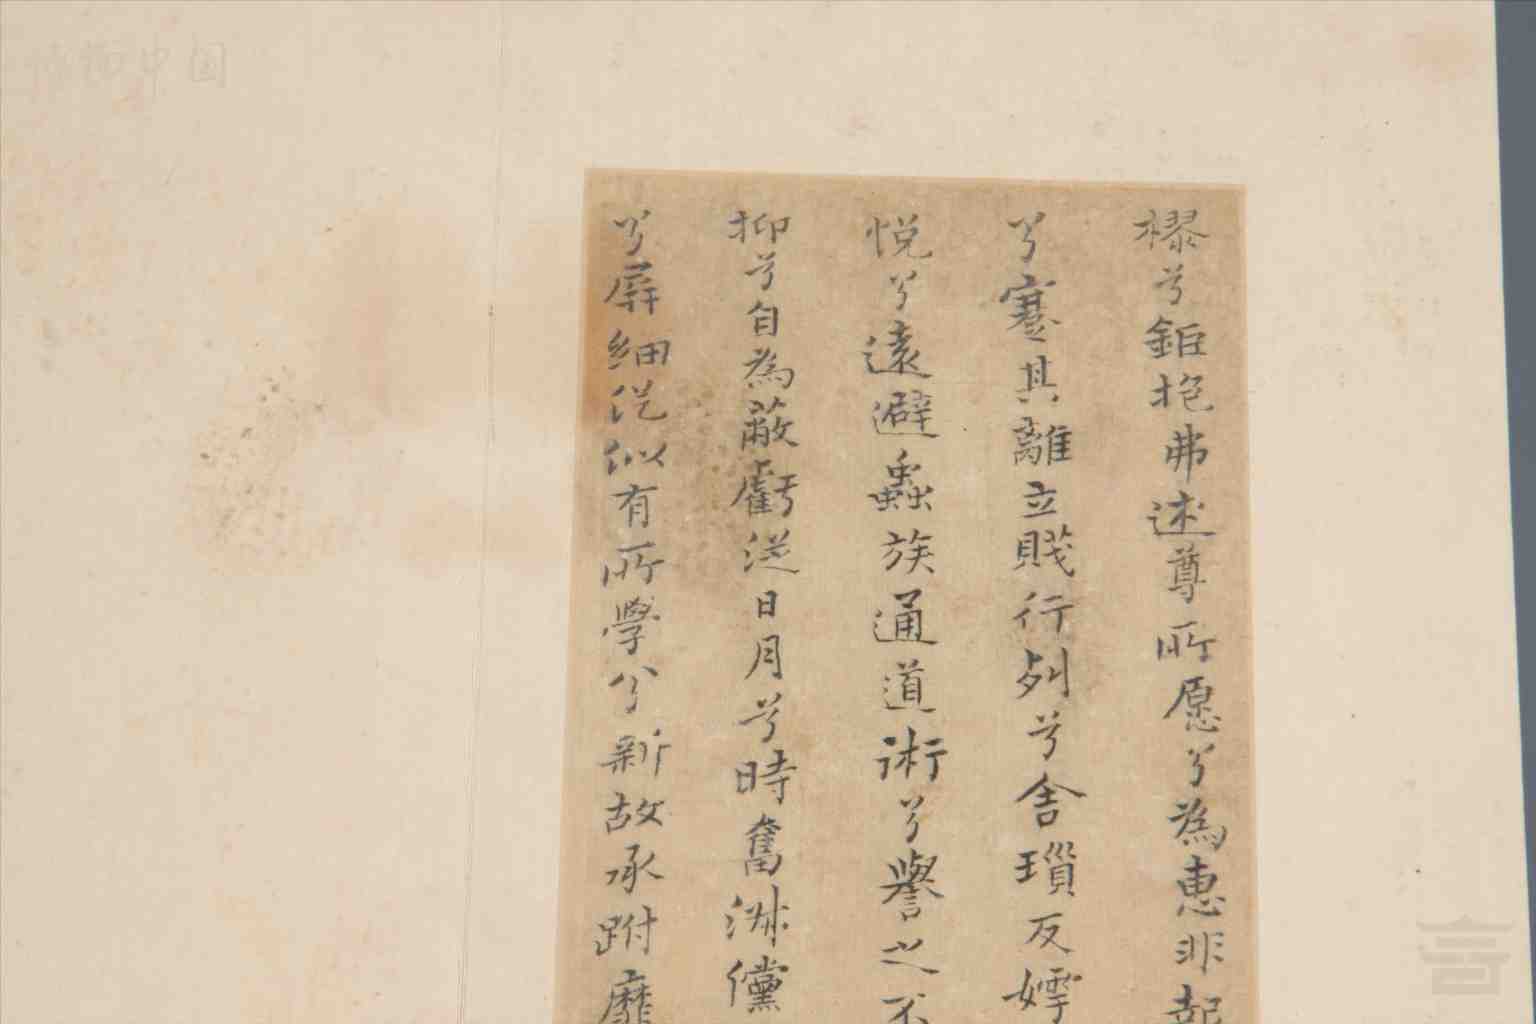 樛兮鉅抱弗述尊所愿兮為惠非起
兮蹇其離立賤行列兮舍瑣反嫭
悦兮遠避蟲族通道術兮譽之不
抑兮自為蔽虧從日月兮時奮淋儻
兮屏細從似有所學兮新故承跗靡